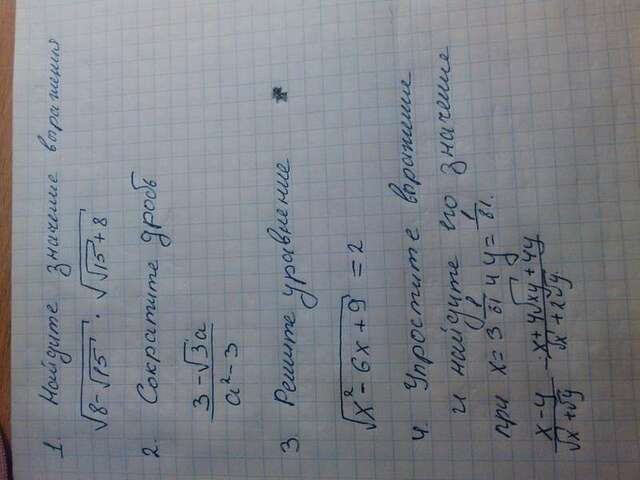 1. Найдите значение выражения
√(8-√15) · √(√15+8)
2. Сократите дробь
(3-√3a)/(a²-3)
3. Решите уравнение
√(x²-6x+9) = 2
4. Упростите выражение
и найдите его значение
при x=3 1/81 и y=1/81.
(x-y)/(√x+√y) - (x+4√xy+4y)/(√x+2√y)